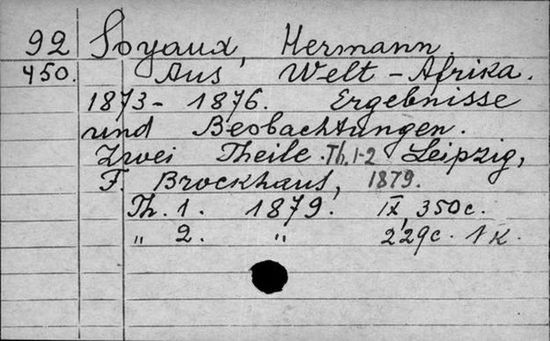 92 Soyaux, Hermann.
450. Aus Welt-Afrika.
1873-1876. Ergebnisse
und Beobachtungen.
Zwei Theile. Th. 1-2 Leipzig,
F. Brockhaus, 1879.
Th. 1. 1879. IX, 350c.
„ 2. „ 229c. 1 K.